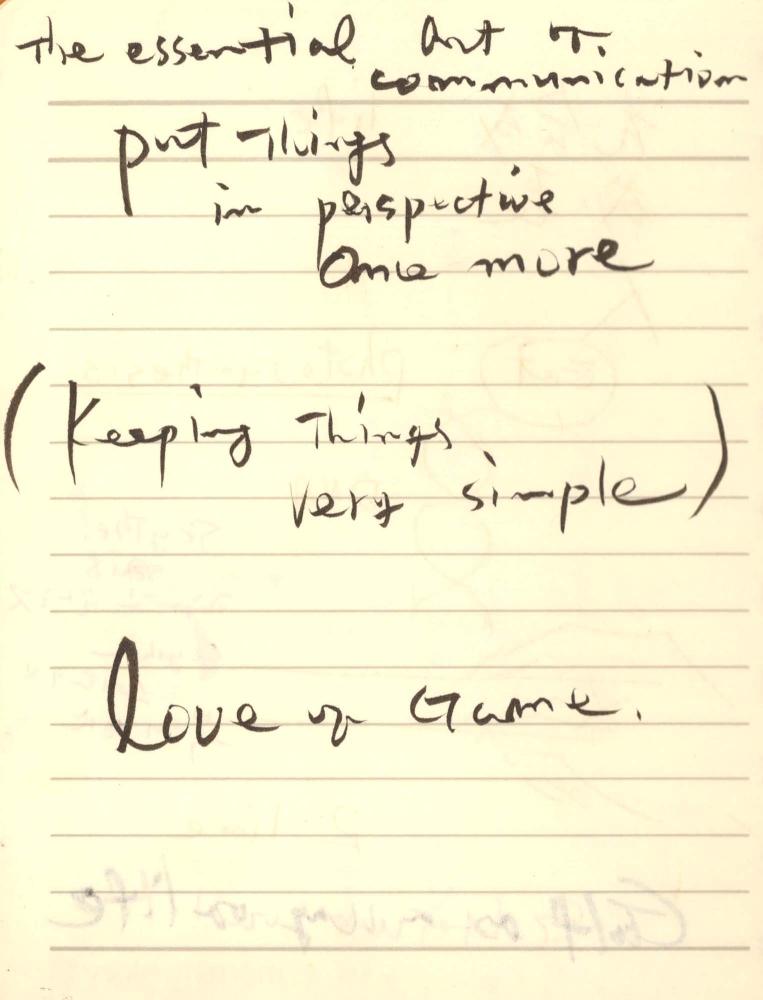 The essential Art of
communication
put Things
in perspective
Once more
(Keeping Things
very simple)
love of Game.